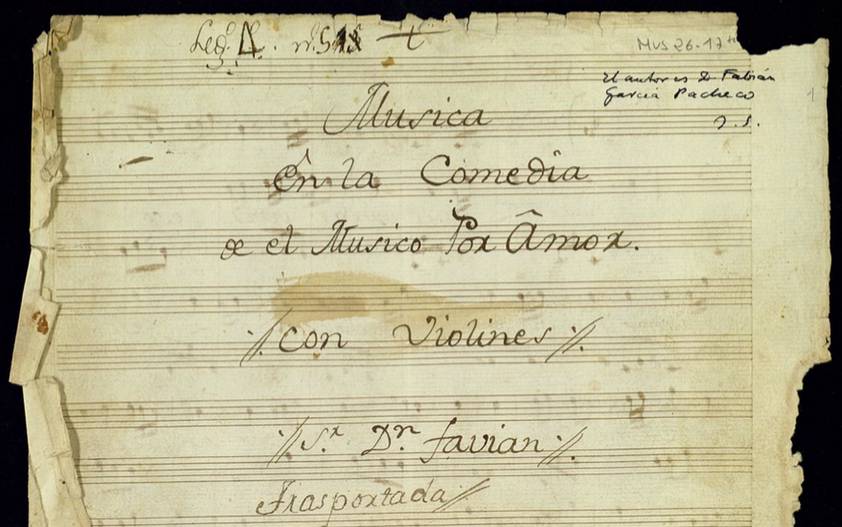 Leg.º 4. n.º
Mus 26-17
el autor es D. Fabián
García Pacheco
Musica
En la Comedia
de el Musico Por Âmor.
//. Con Violines //.
//. S.r D.n favian //.
Trasportada //